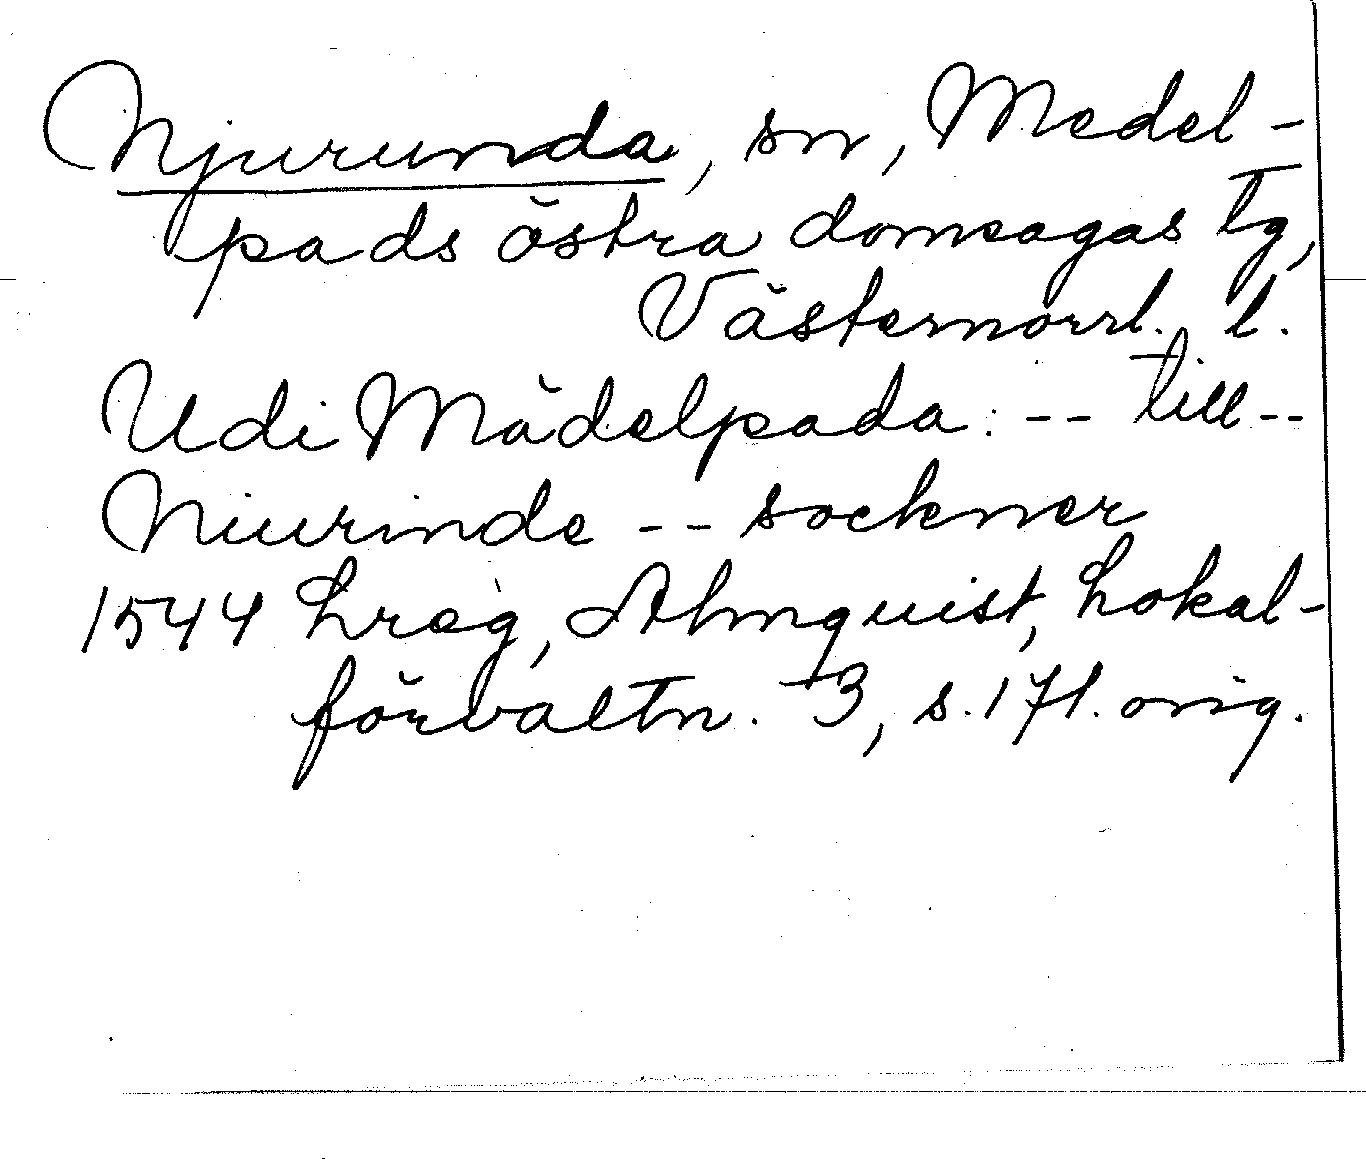 Njurunda, sn, Medel-
pads östra domsagas tg,
Västernorrl. l.
Udi Mädelpada: -- till --
Niurinde -- sockner
1544 Lreg, Almquist, Lokal-
förvaltn. 3, s. 171. orig.